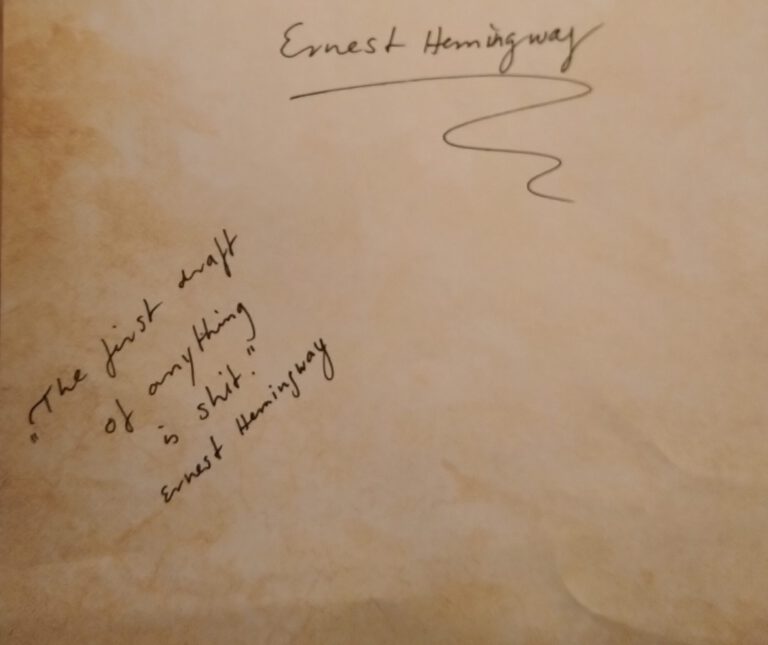 Ernest Hemingway
"The first draft
of anything
is shit."
Ernest Hemingway